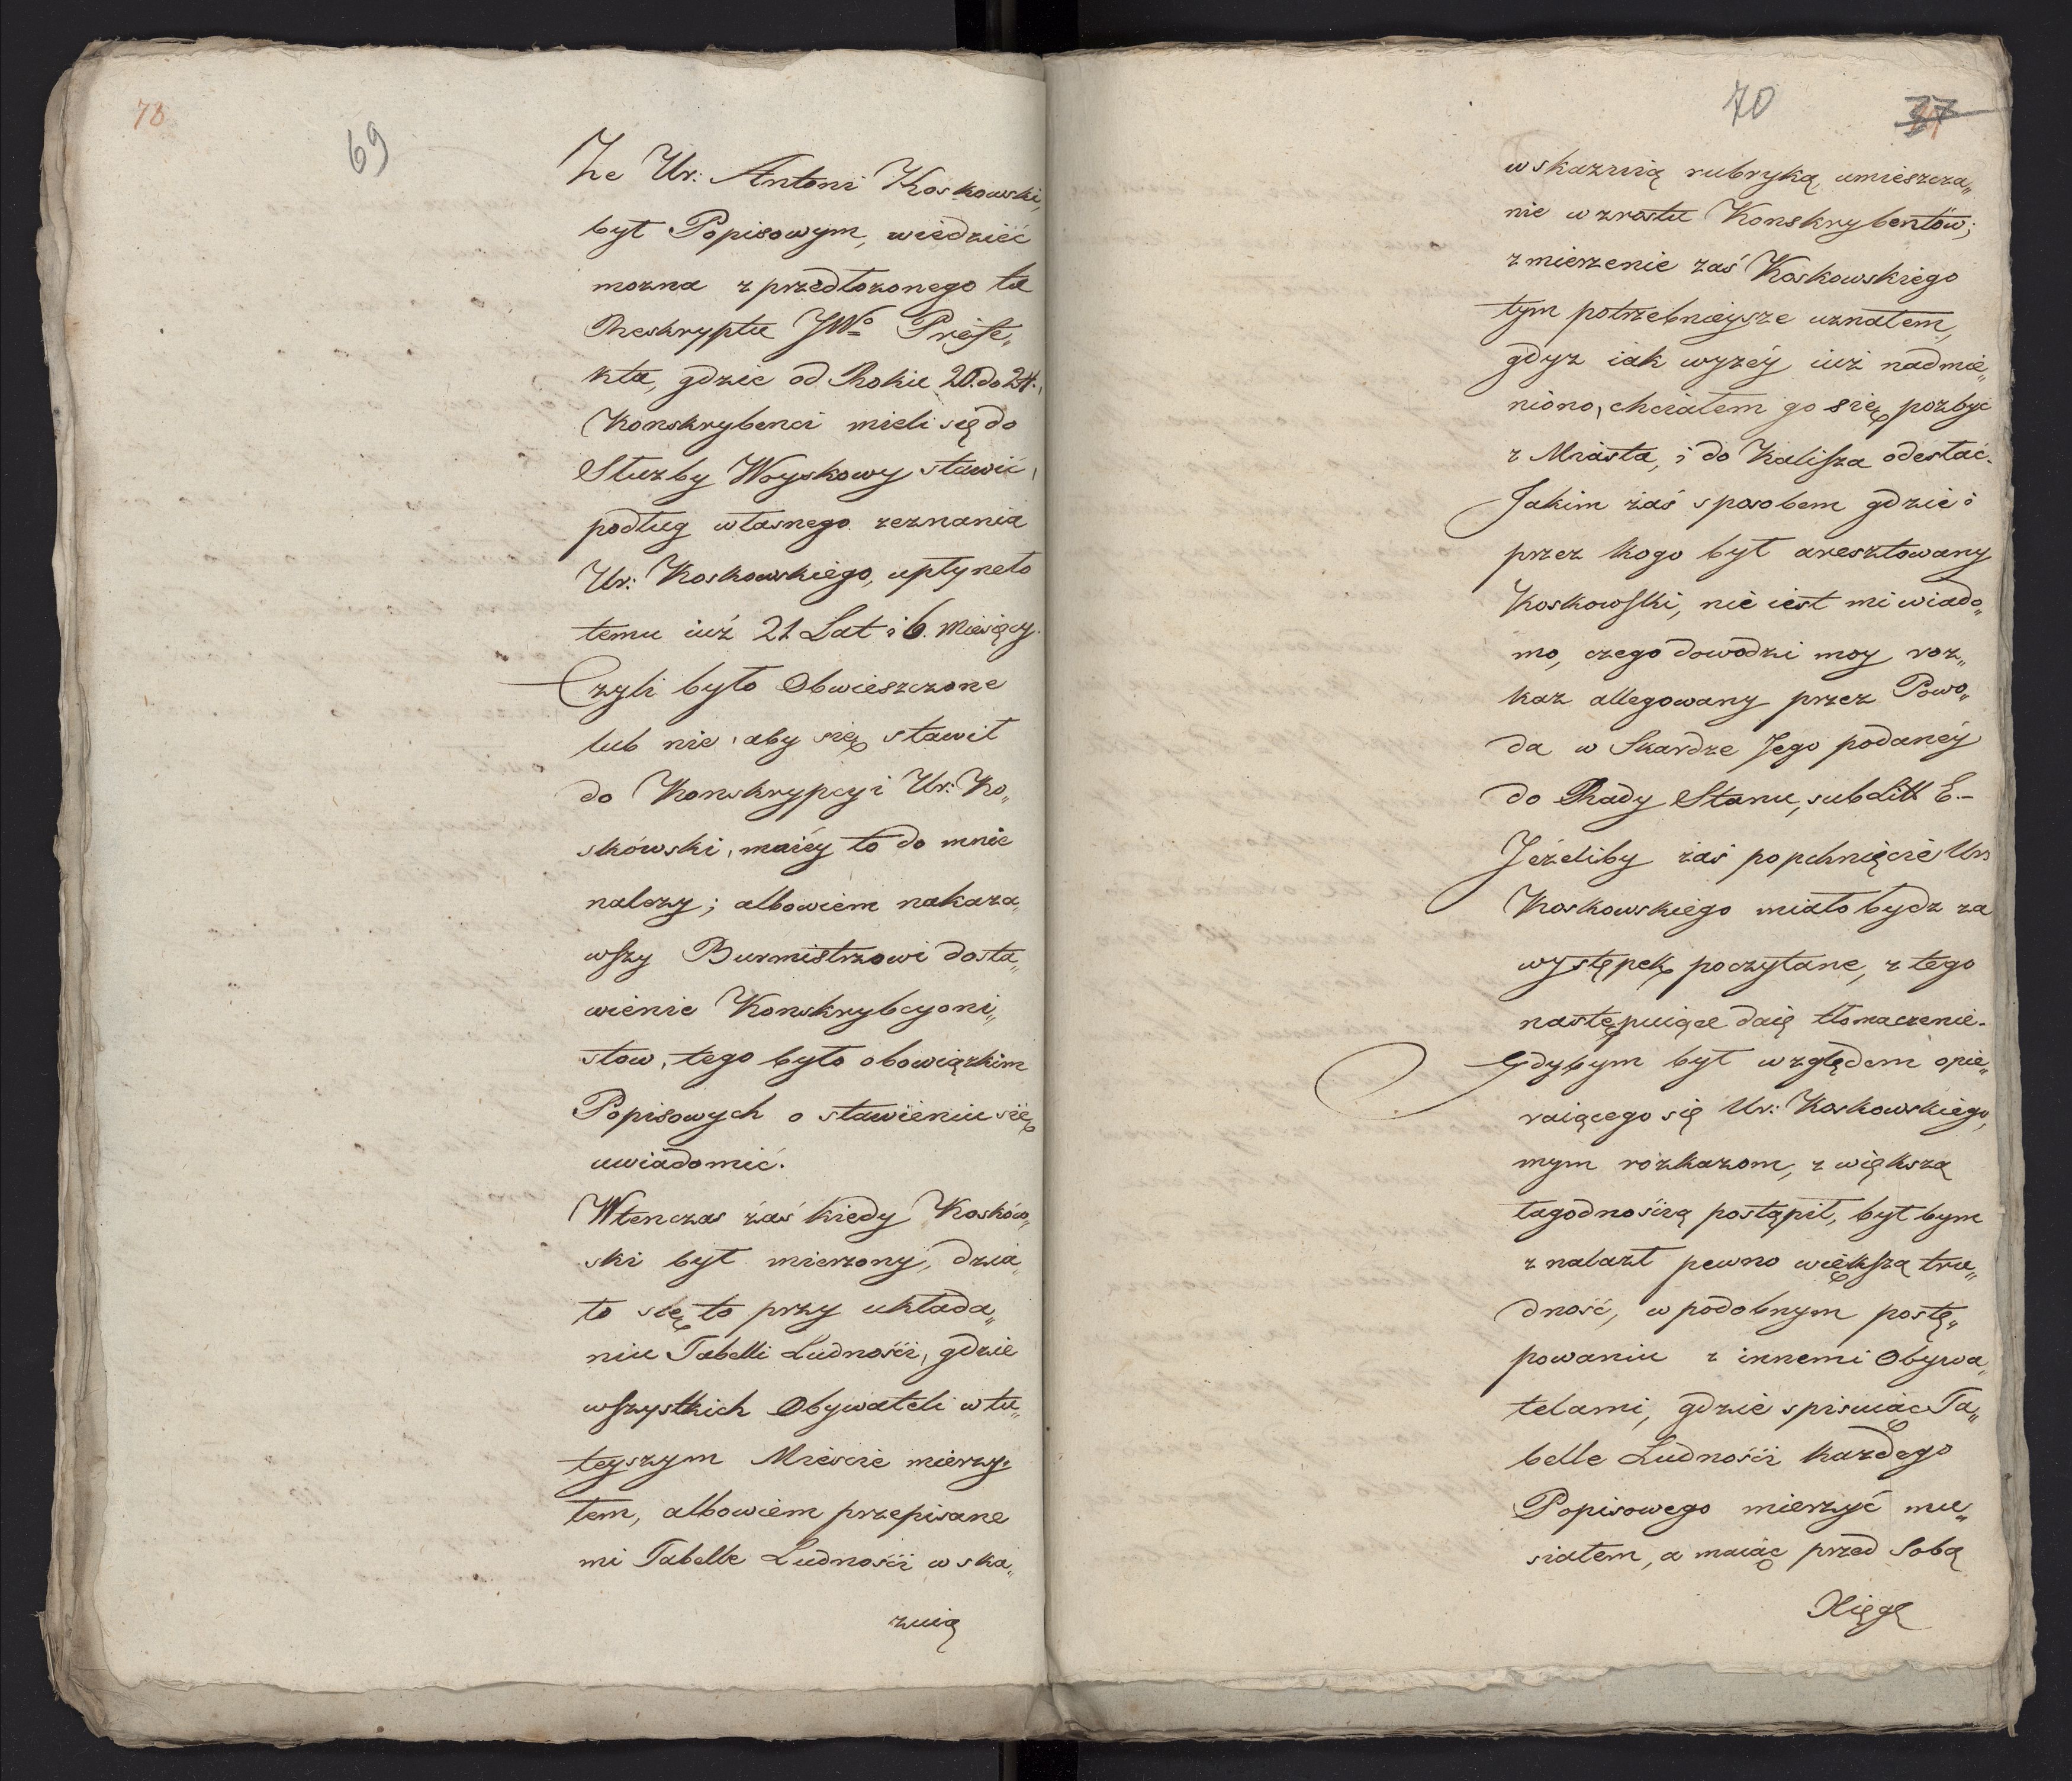 78
69
Ze Ur: Antoni Koskowski,
był Popisowym, wiedzieć
mozna z przedłozonego tu
Reskryptu JWo Prefe„
kta, gdzie od Roku 20. do 24.,
Konskrybenci mieli się do
Służby Woyskowy stawić,
podług własnego zeznania
Ur: Koskowskiego, upłyneło
temu iuż 21 Lat i 6. Miesięcy.
Czyli było Obwieszczone
lub nie, aby się stawił
do Konskrypcyi Ur: Ko„
skowski, mniéy to do mnie
nalezy; albowiem nakaza„
wszy Burmistrzowi dosta„
wienie Konskrybcyoni„
stow, tego było obowiązkim
Popisowych o stawieniu się
uwiadomić.
Wtenczas zaś kiedy Kosków„
ski był mierzony, dzia„
ło się to przy układa„
niu Tabelli Ludności, gdzie
wszystkich Obywateli w tu„
teyszym Mieście mierzy„
łem, albowiem przepisane
mi Tabelle Ludności wska„
zuią
70
37
wskazuią rubryką umieszcza„
nie wzrostu Konskrybentów;
zmierzenie zaś Koskowskiego
tym potrzebnieysze uznałem,
gdyz iak wyzéy iuż nadmie„
niono, chciałem go się pozbyć
z Miasta, i do Kalisza odesłać.
Jakim zaś sposobem gdzie i
przez kogo był aresztowany
Koskowski, nie iest mi wiado„
mo, czego dowodzi moy roz„
kaz allegowany przez Powo„
da w Skardze Jego podanéy
do Rady Stanu, sub Litt E.–
Jeżeliby zaś popchnięcie Ur:
Koskowskiego miało bydz za
występek poczytane, z tego
następuiące daię tłomaczenie.
Gdybym był względem opie„
raiącego się Ur: Koskowskiego,
mym rozkazom, z większą
łagodnością postąpił, był bym
znalazł pewno większą tru„
dność, w podobnym postę„
powaniu z innemi Obywa„
telami, gdzie spisuiąc Ta„
belle Ludności kazdego
Popisowego mierzyć mu„
siałem, a maiąc przed Sobą
Xięgę